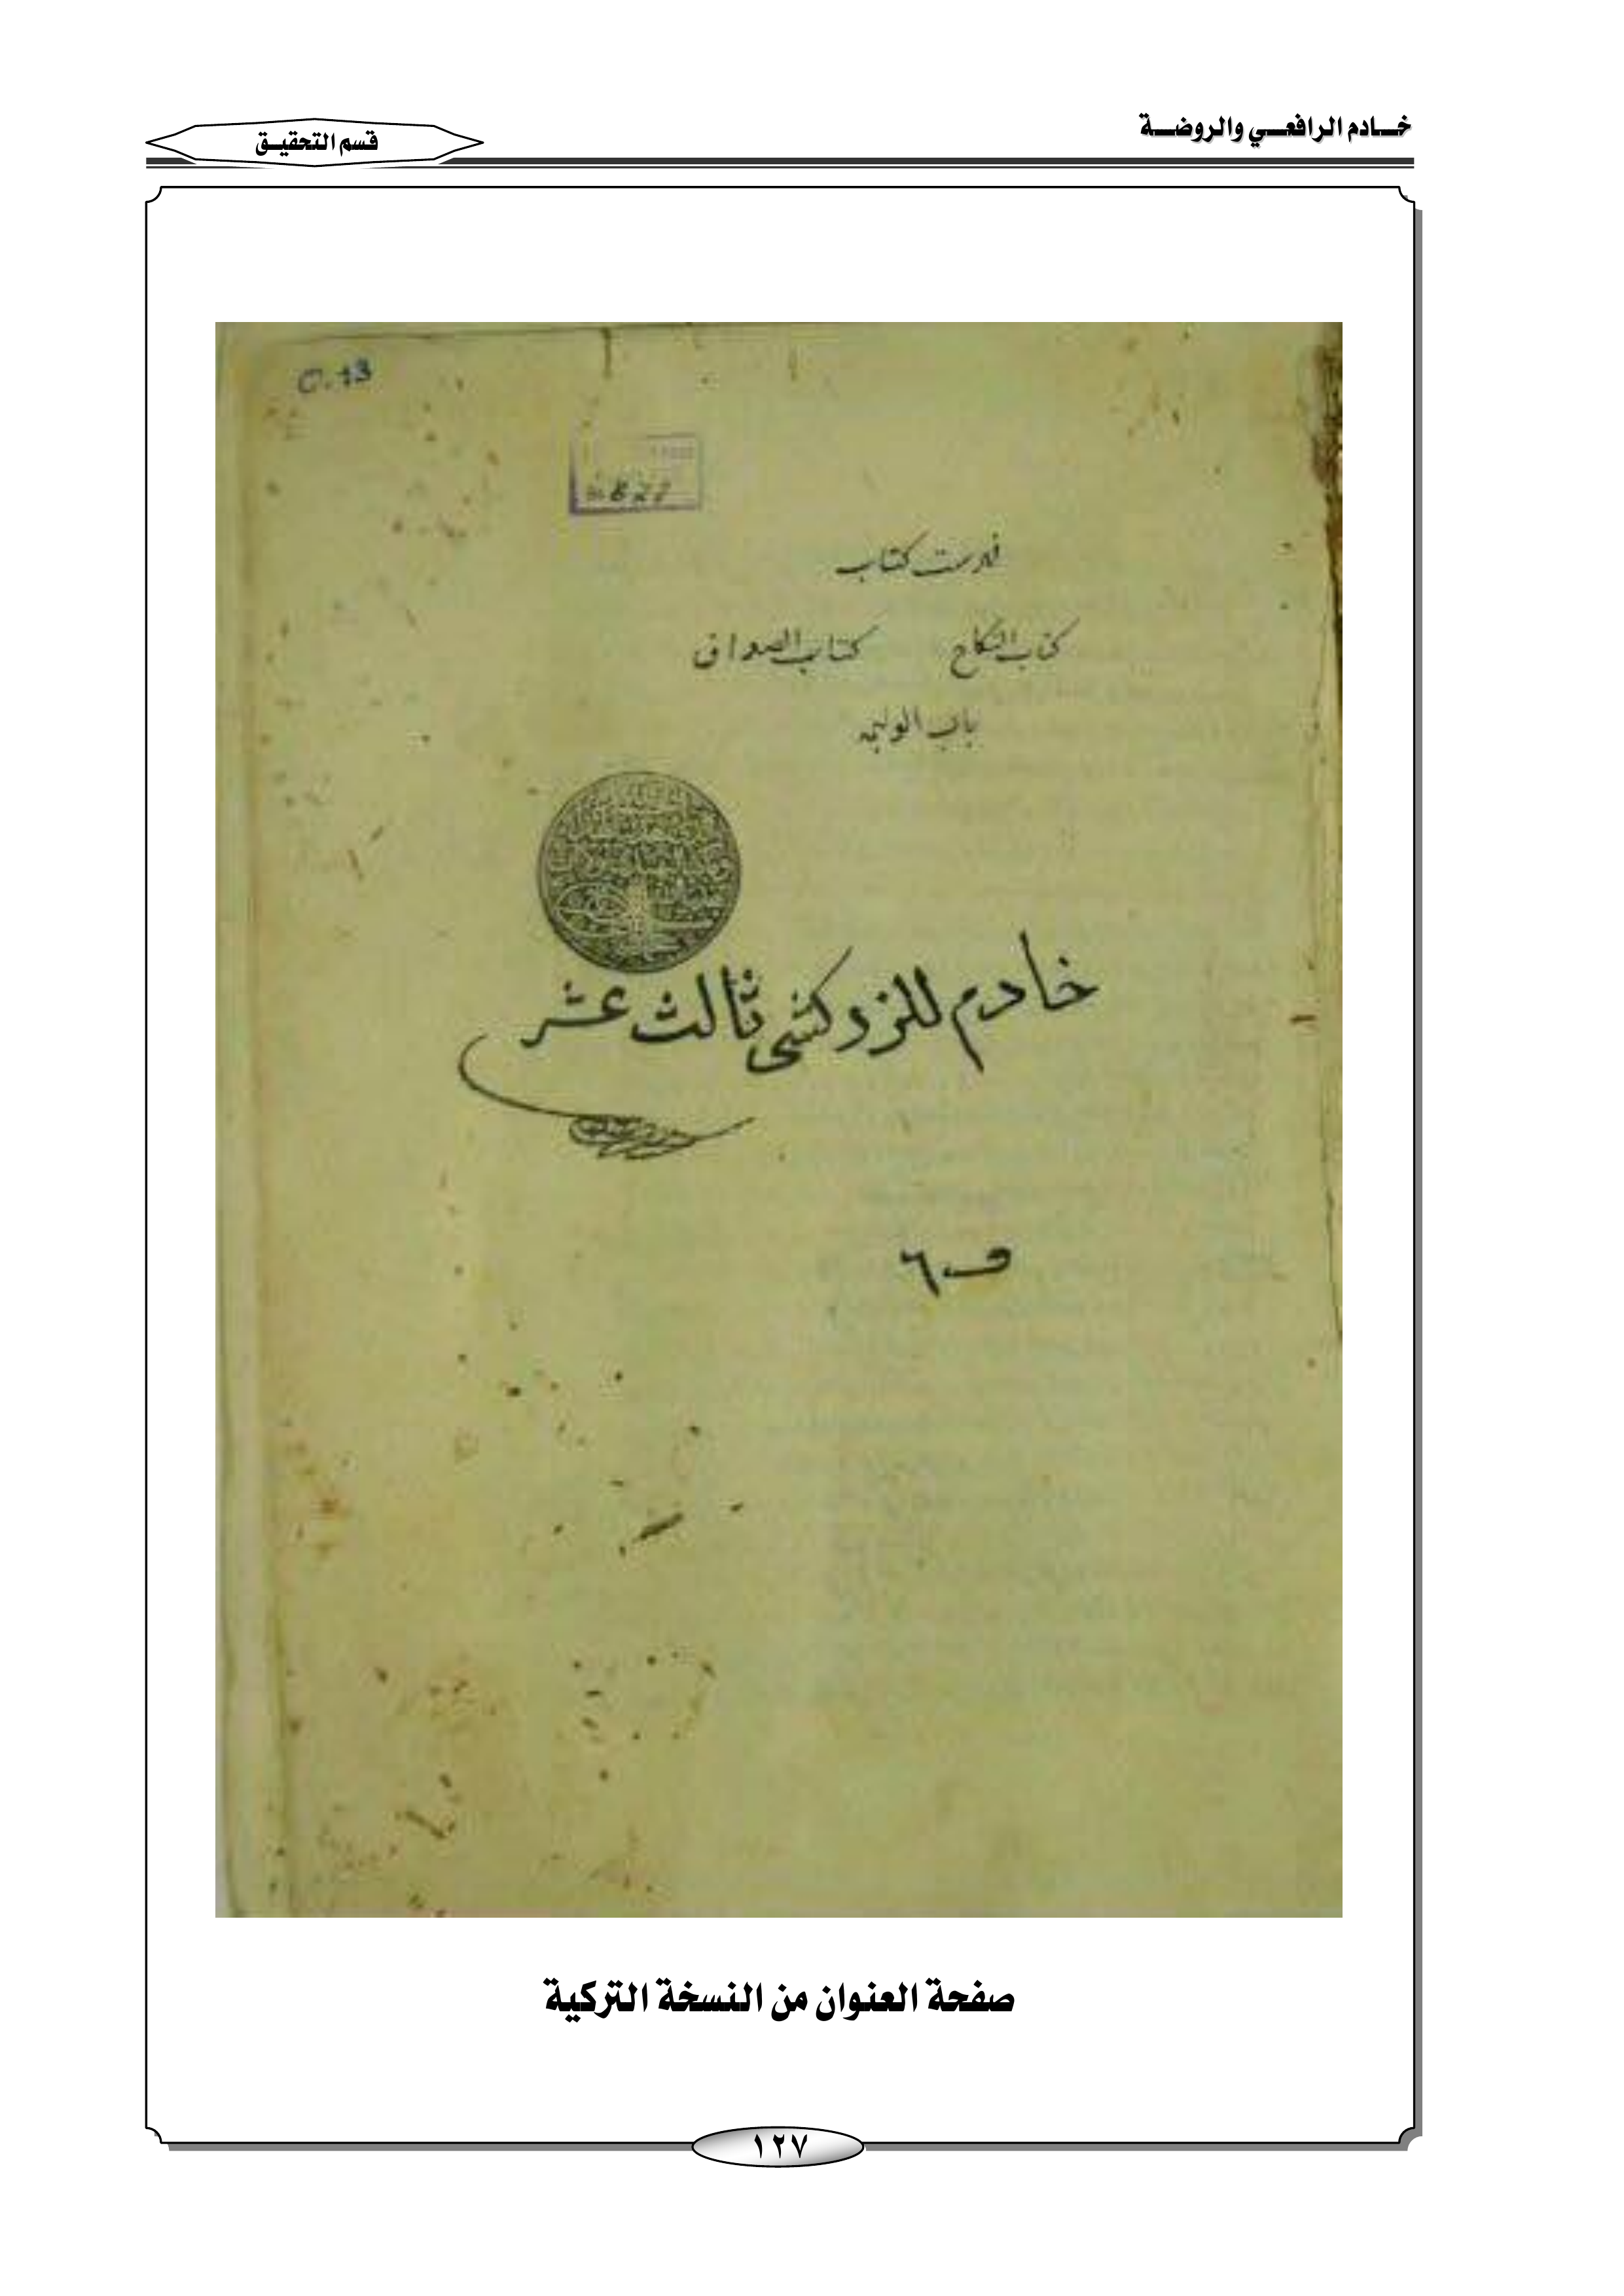 خادم الرافعي والروضة
قسم التحقيق
C.13
فهرست كتاب
كتاب النكاح كتاب الصداق
باب الوليمه
خادم للزركشى ثالث عشر
صفحة العنوان من النسخة التركية
١٢٧